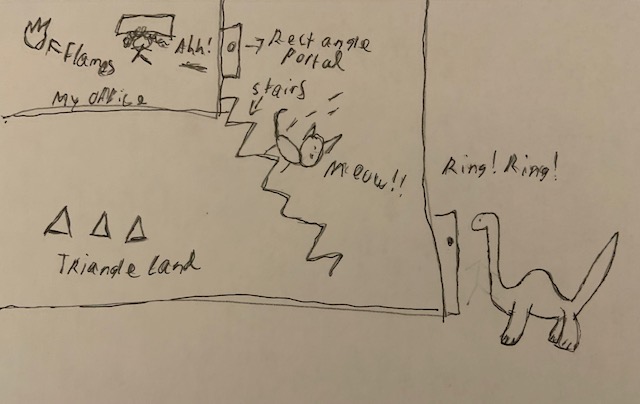 Flames
Ahh!
Rectangle
Portal
My Office
stairs
Meow!!
Ring! Ring!
Triangle Land